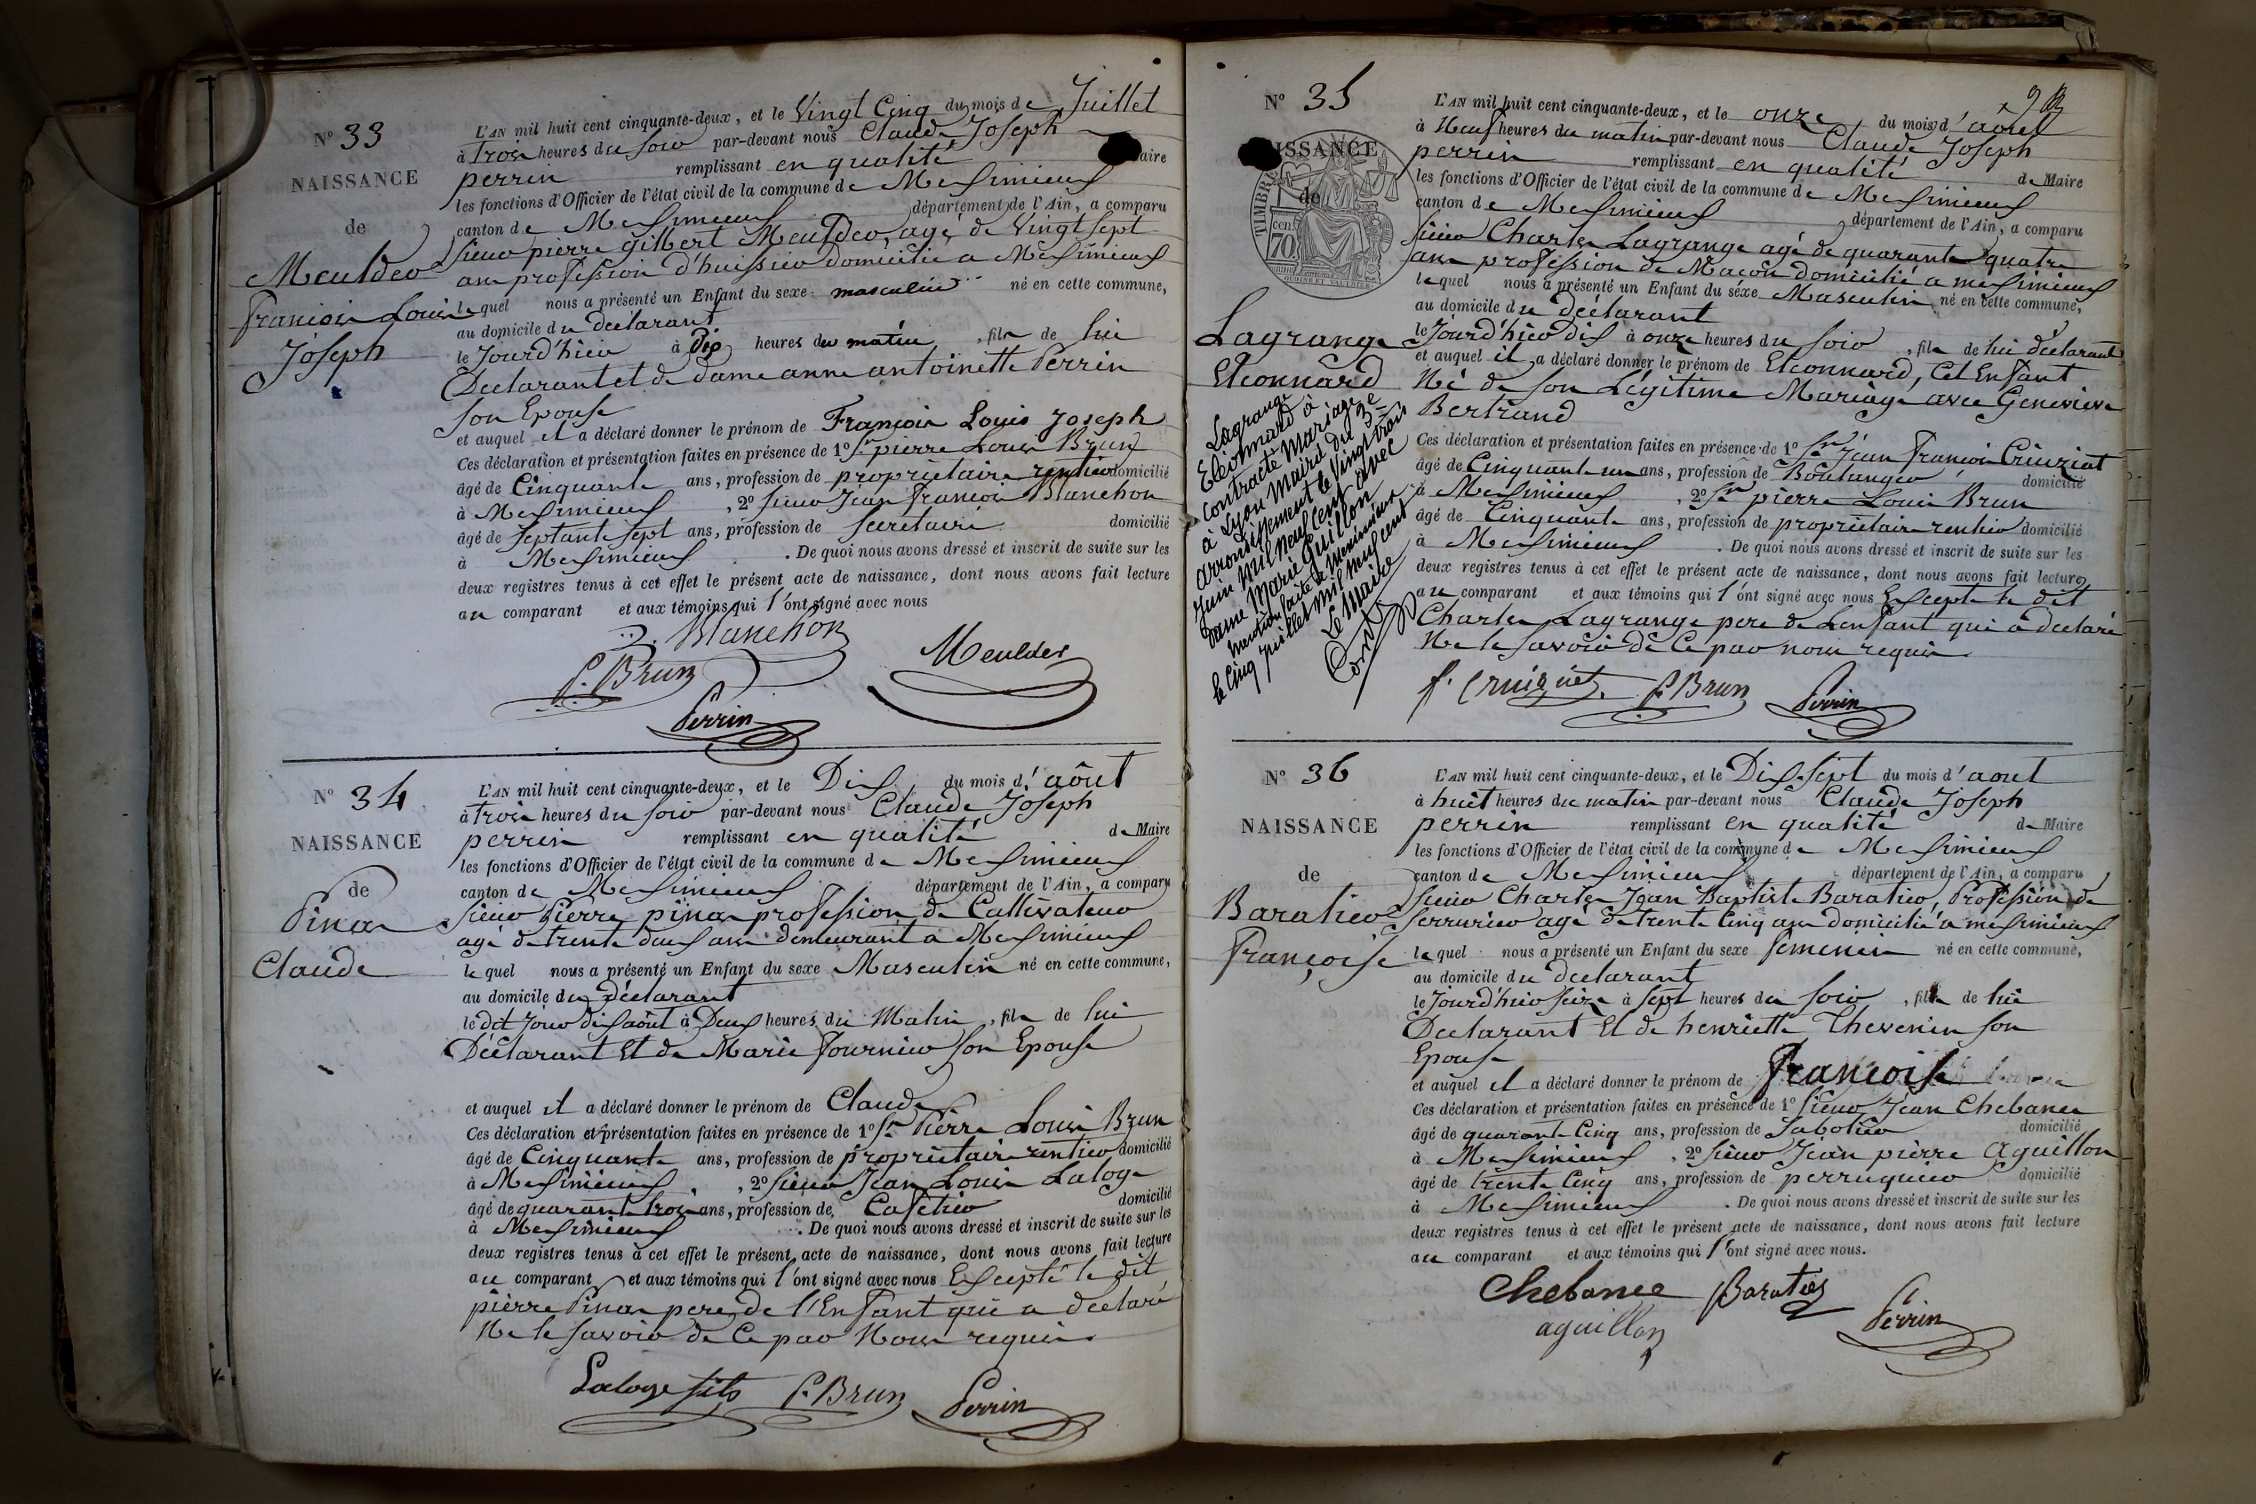 N° 33
NAISSANCE
de
Meulder
François Louis
Joseph
L'AN mil huit cent cinquante-deux, et le Vingt Cinq du mois de Juillet
à trois heures du soir par-devant nous Claude Joseph
perrin remplissant en qualité aire
les fonctions d'Officier de l'état civil de la commune de Meximieux
canton de Meximieux département de l'Ain, a comparu
Sieur pierre gilbert Meulder, agé de Vingt sept
ans profession d'huissier domicilié a Meximieux
lequel nous a présenté un Enfant du sexe masculin né en cette commune,
au domicile du déclarant
le Jourd'hui à dix heures du matin, fils de lui
Déclarant et de dame anne antoinette Perrin
son Epouse
et auquel il a déclaré donner le prénom de François Louis Joseph
Ces déclaration et présentation faites en présence de 1° Sr pierre Louis Brun
âgé de Cinquante ans, profession de propriétaire rentier domicilié
à Meximieux, 2° Sieur Jean François Blanchon
âgé de septante sept ans, profession de secrétaire domicilié
à Meximieux. De quoi nous avons dressé et inscrit de suite sur les
deux registres tenus à cet effet le présent acte de naissance, dont nous avons fait lecture
au comparant et aux témoins qui l'ont signé avec nous
Blanchon
P. Brun
Meulder
Perrin
N° 34
NAISSANCE
de
Pinas
Claude
L'AN mil huit cent cinquante-deux, et le Dix du mois d'août
à trois heures du soir par-devant nous Claude Joseph
perrin remplissant en qualité de Maire
les fonctions d'Officier de l'état civil de la commune de Meximieux
canton de Meximieux département de l'Ain, a comparu
Sieur Pierre pinas profession de Cultivateur
agé de trente deux ans demeurant a Meximieux
lequel nous a présenté un Enfant du sexe Masculin né en cette commune,
au domicile du déclarant
le dit Jour dix août à Deux heures du Matin, fils de lui
Déclarant Et de Marie fournier son Epouse
et auquel il a déclaré donner le prénom de Claude
Ces déclaration et présentation faites en présence de 1° Sr Pierre Louis Brun
âgé de Cinquante ans, profession de propriétaire rentier domicilié
à Meximieux, 2° Sieur Jean Louis Laloge
âgé de quarante trois ans, profession de Cafetier domicilié
à Meximieux. De quoi nous avons dressé et inscrit de suite sur les
deux registres tenus à cet effet le présent acte de naissance, dont nous avons fait lecture
au comparant et aux témoins qui l'ont signé avec nous Excepté le dit
pierre Pinas pere de l'Enfant qui a déclaré
Ne le savoir de Ce par Nous requis.
Laloge fils P. Brun Perrin
N° 35
NAISSANCE
de
TIMBRE
70
Lagrange
Eléonnard
Lagrange
Eléonnard à
contracté mariage
à Lyon Mairie du 3e
arrondissement le Vingt trois
Juin mil neuf cent avec
dame Marie Guillon
mention faite à Meximieux
le cinq juillet mil neuf cent
Le Maire
L'AN mil huit cent cinquante-deux, et le onze du mois d'aôut
à Neuf heures du matin par-devant nous Claude Joseph
perrin remplissant en qualité de Maire
les fonctions d'Officier de l'état civil de la commune de Meximieux
canton de Meximieux département de l'Ain, a comparu
Sieur Charles Lagrange agé de quarante quatre
ans profession de Maçon domicilié a meximieux
lequel nous a présenté un Enfant du sexe Masculin né en cette commune,
au domicile du déclarant
le Jourd'hier dix à onze heures du soir, fils de lui déclarant
et auquel il a déclaré donner le prénom de Eléonnard, Cet Enfant
Né de son Légitime Mariage avec Geneviève
Bertrand
Ces déclaration et présentation faites en présence de 1° Sr Jean François Cruiziat
âgé de Cinquante un ans, profession de Boulanger domicilié
à Meximieux, 2° Sr pierre Louis Brun
âgé de Cinquante ans, profession de propriétaire rentier domicilié
à Meximieux. De quoi nous avons dressé et inscrit de suite sur les
deux registres tenus à cet effet le présent acte de naissance, dont nous avons fait lecture
au comparant et aux témoins qui l'ont signé avec nous Excepté le dit
Charles Lagrange pere de Lenfant qui a déclaré
Ne le savoir de Ce par nous requis.
P. Brun Perrin
N° 36
NAISSANCE
de
Baratier
Françoise
L'AN mil huit cent cinquante-deux, et le Dix-Sept du mois d'aout
à huit heures du matin par-devant nous Claude Joseph
perrin remplissant en qualité de Maire
les fonctions d'Officier de l'état civil de la commune de Meximieux
canton de Meximieux département de l'Ain, a comparu
Sieur Charles Jean Baptiste Baratier, Profession de
Serrurier agé de trente Cinq ans domicilié a meximieux
lequel nous a présenté un Enfant du sexe femenin né en cette commune,
au domicile du déclarant
le Jourd'hier seize à sept heures du soir, fille de lui
Déclarant Et de henriette Thevenin son
Epouse
et auquel il a déclaré donner le prénom de françoise
Ces déclaration et présentation faites en présence de 1° Sieur Jean Chebance
âgé de quarante Cinq ans, profession de Sabotier domicilié
à Meximieux, 2° Sieur Jean pierre aguillon
âgé de trente Cinq ans, profession de perruquier domicilié
à Meximieux. De quoi nous avons dressé et inscrit de suite sur les
deux registres tenus à cet effet le présent acte de naissance, dont nous avons fait lecture
au comparant et aux témoins qui l'ont signé avec nous.
Chebance Baratier
aguillon Perrin